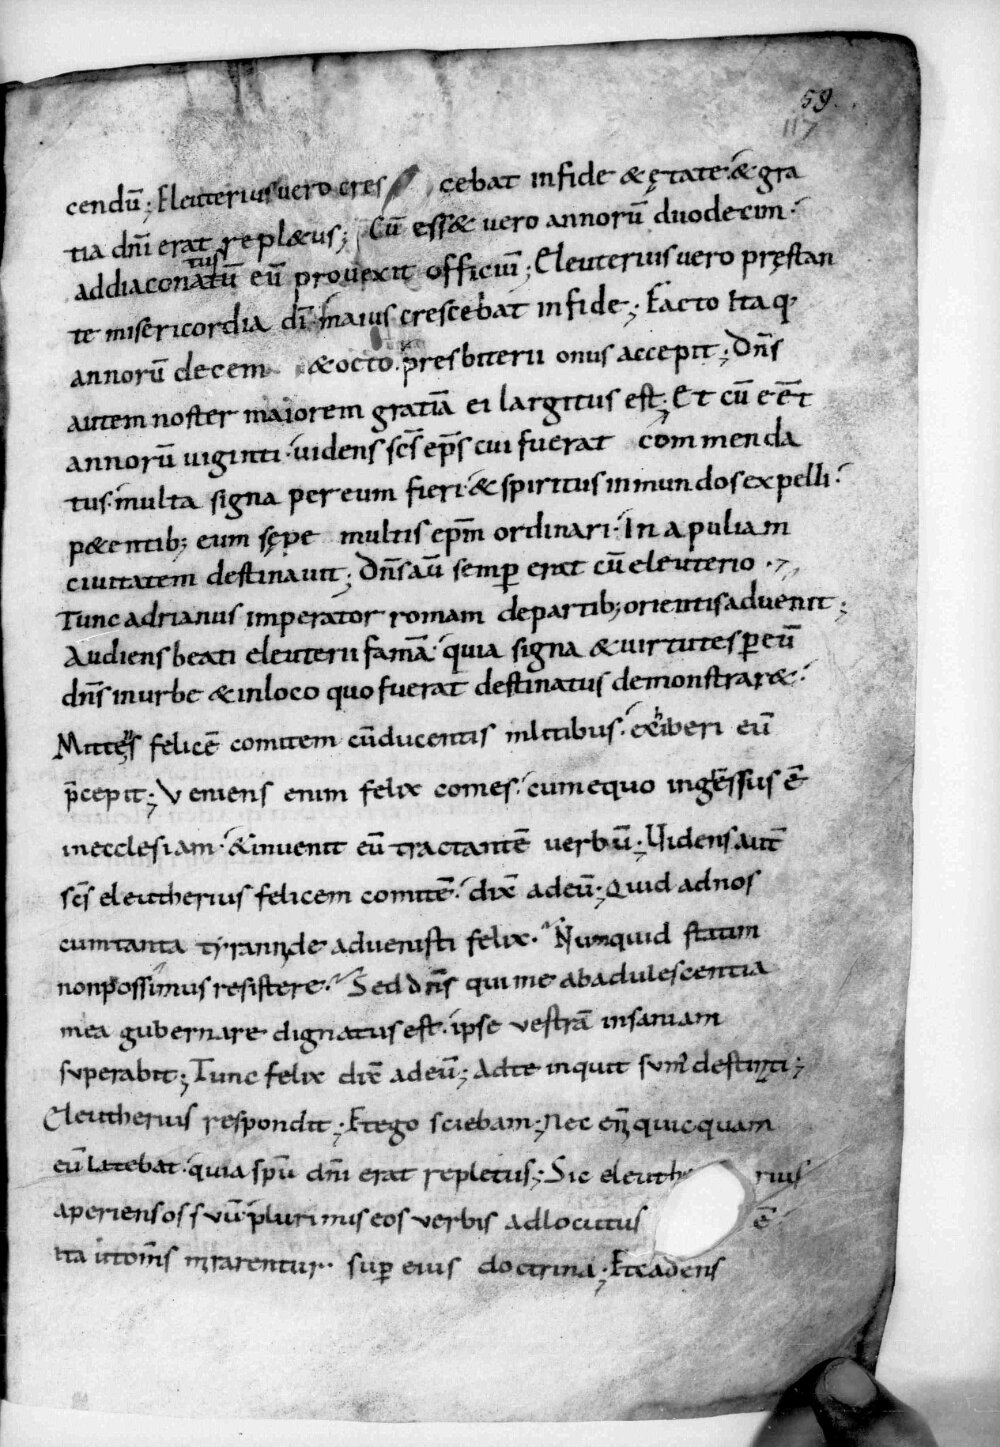 59
117
cendū; Eleuterius vero cres cebat in fide & ętate· & gra
tia dn̄i erat repl&us; Cū ess& vero annorū duodecim·
ad diaconatūtus eū provexit officiū; Eleuterius vero pręstan
te misericordia dī· maius crescebat in fide; Facto itaq·
annorū decem & octo· presbiterii onus accepit; Dn̄s
autem noster maiorem gratiā ei largitus est; Et cū eēt
annorū viginti· videns sc̄s ep̄s cui fuerat commenda
tus· multa signa per eum fieri· & spiritus inmundos expelli·
p&entib; eum sępe multis ep̄m ordinari· In apuliam
civitatem destinavit; Dn̄s aū semp̄ erat cū eleuterio·
Tunc adrianus imperator romam de partib; orientis advenit;
Audiens beati eleuterii famā· quia signa & virtutes p̄ eū
dn̄s in urbe & in loco quo fuerat destinatus demonstrar&·
Mittens felicē comitem cū ducentis militibus· exhiberi eū
p̄cepit; Veniens enim felix comes· cum equo ingressus ē
in ecclesiam· & invenit eū tractantē verbū; Videns aut̄
sc̄s eleutherius felicem comitē· dix̄ ad eū; Quid ad nos
cum tanta tyrannide advenisti felix· Numquid statim
non possimus resistere· Sed dn̄s qui me ab adulescentia
mea gubernare dignatus est· ipse vestrā insaniam
superabit; Tunc felix dix̄ ad eū; Ad te inquit sum destinati;
Eleutherius respondit; Et ego sciebam; Nec eni quicquam
eū latebat· quia spū dn̄i erat repletus; Sic eleuthe rius
aperiens os suū· plurimis eos verbis adlocutus ē·
ita ut om̄s mirarentur· sup̄ eius doctrina; Et cadens